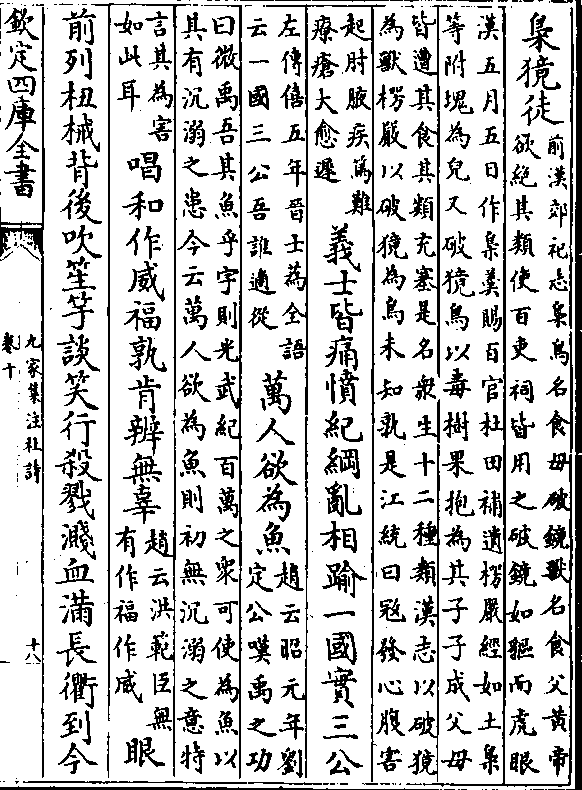 梟獍徒前漢郊祀志梟鳥名食母破鏡獸名食父黃帝
欲絕其類使百吏祠皆用之破鏡如貙而虎眼
漢五月五日作梟羹賜百官杜田補遺楞嚴經如土梟
等附塊為兒又破獍鳥以毒樹果抱為其子子成父母
皆遭其食其類充塞是名衆生十二種類漢志以破獍
為獸楞嚴以破獍為鳥未知孰是江統曰冦發心腹害
起肘腋疾篤難
療瘡大愈遲
義士皆痛憤紀綱亂相踰一國實三公
左傳僖五年晉士為全語
云一國三公吾誰適從
萬人欲為魚
趙云昭元年劉
定公嘆禹之功
曰微禹吾其魚乎字則光武紀百萬之衆可使為魚以
其有沉溺之患今云萬人欲為魚則初無沉溺之意特
言其為害
如此耳
唱和作威福孰肯辨無辜
趙云洪範臣無
有作福作威
眼
前列杻械背後吹笙竽談笑行殺戮濺血滿長衢到今
欽定四庫全書
九家集注杜詩
卷十
十八